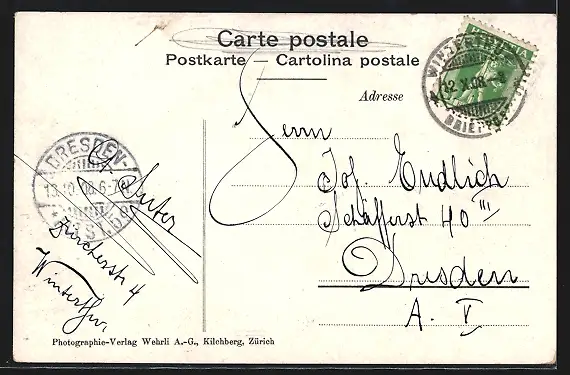 Carte postale
Postkarte — Cartolina postale
Adresse
WINTERTHUR
12.X.08
BRIEF
HELVETIA
DRESDEN-
13.10.08.6-7
Herrn
Jos. Endlich
Schäfferst 40 III
Dresden
A. V
Suter
Zürcherstr 4
Winterthur.
Photographie-Verlag Wehrli A.-G., Kilchberg, Zürich